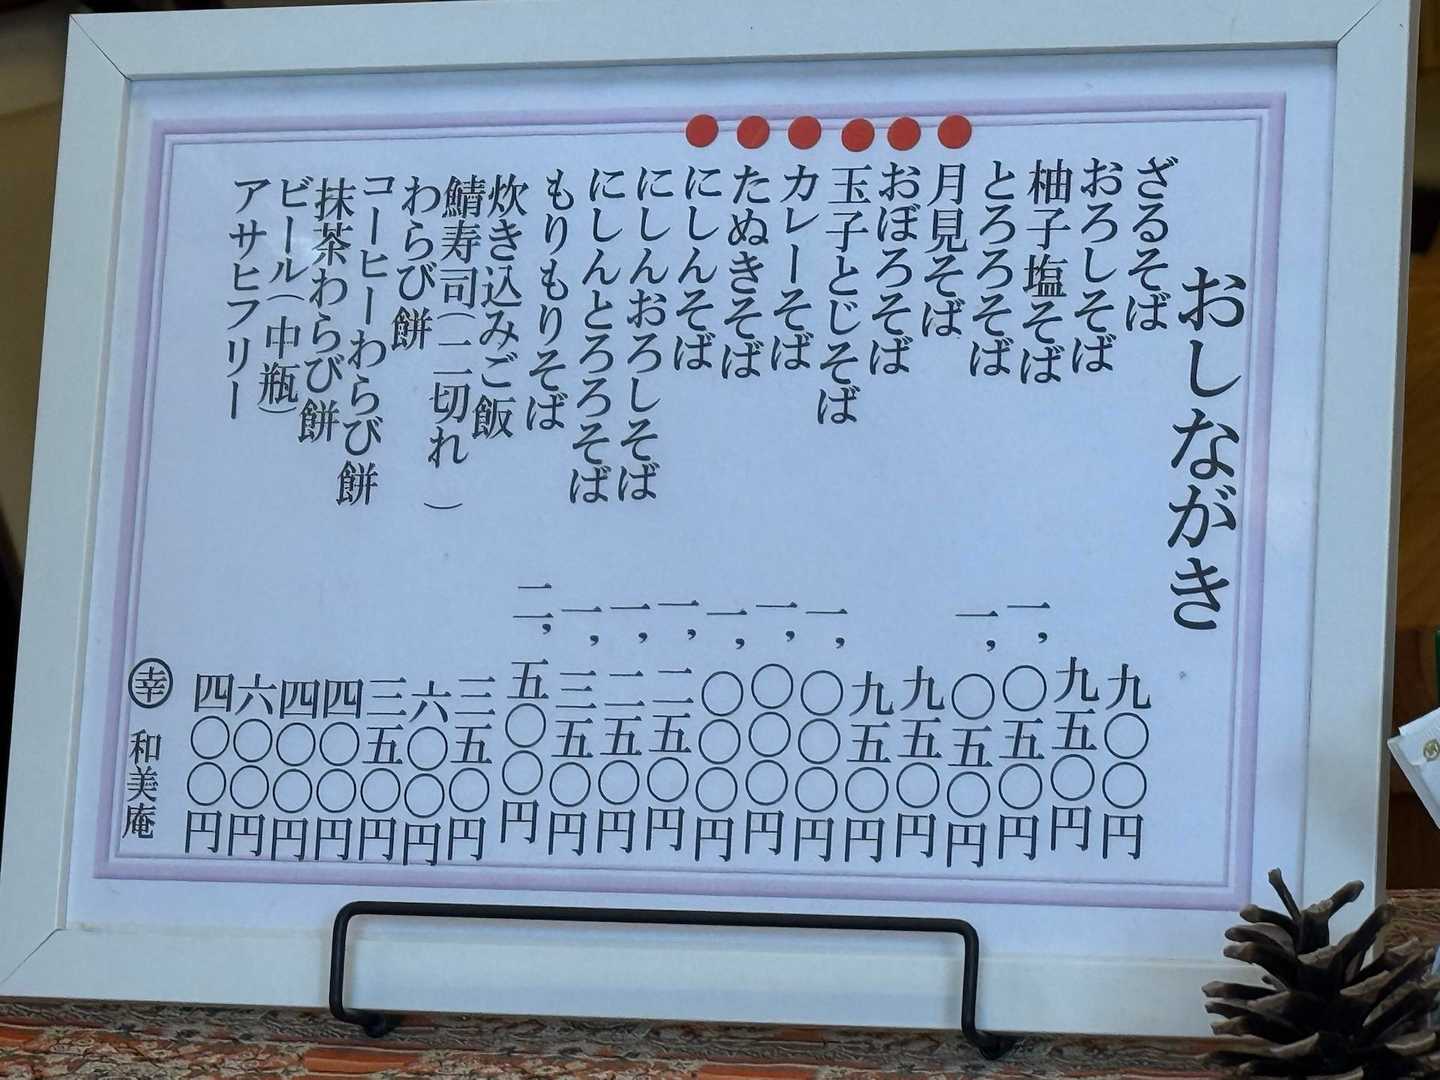 おしながき
ざるそば 九〇〇円
おろしそば 九五〇円
柚子塩そば 一,〇五〇円
とろろそば 一,〇五〇円
月見そば 九五〇円
おぼろそば 九五〇円
玉子とじそば 一,〇〇〇円
カレーそば 一,〇〇〇円
たぬきそば 一,〇〇〇円
にしんそば 一,二五〇円
にしんおろしそば 一,二五〇円
にしんとろろそば 一,三五〇円
もりもりそば 二,五〇〇円
炊き込みご飯 三五〇円
鯖寿司(二切れ) 六〇〇円
わらび餅 三五〇円
コーヒーわらび餅 四〇〇円
抹茶わらび餅 四〇〇円
ビール(中瓶) 六〇〇円
アサヒフリー 四〇〇円
幸 和美庵